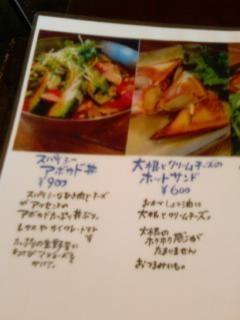 スパイシー
アボカド丼
¥900
スパイシーなひき肉とチーズ
がアクセントの
アボカドたっぷり丼ぶり。
レタスや
トマト
たっぷりの生野菜に
かけて。
大根とクリームチーズの
ホットサンド
¥600
おかかしょう油に
大根とクリームチーズ。
大根の
ホクホク感が
たまりません
おつまみにも。